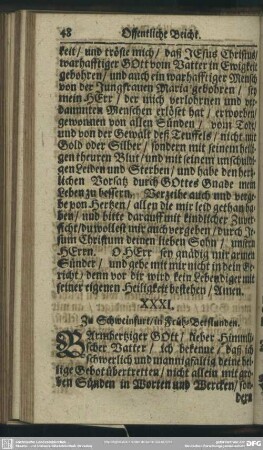 48 Offentliche Beicht.
keit / und tröste mich / daß JEsus Christus /
warhafftiger GOtt vom Vatter in Ewigkeit
gebohren / und auch ein warhafftiger Mensch
von der Jungfrauen Maria gebohren / sey
mein HErr / der mich verlohrnen und ver-
dammten Menschen erlöset hat / erworben /
gewonnen von allen Sünden / vom Tode
und von der Gewalt deß Teuffels / nicht mit
Gold oder Silber / sondern mit seinem heili-
gen theuren Blut / und mit seinem unschuldi-
gen Leiden und Sterben / und habe den herz-
lichen Vorsatz durch GOttes Gnade mein
Leben zu bessern. Verzeihe auch und verge-
be von Hertzen / allen die mir leid gethan ha-
ben / und bitte darauff mit kindlicher Zuver-
sicht / du wollest mir auch vergeben / durch Je-
sum Christum deinen lieben Sohn / unsern
HErrn. O HErr sey gnädig mir armen
Sünder / und gehe mit mir nicht in dein Ge-
richt / denn vor dir wird kein Lebendiger mit
seiner eigenen Heiligkeit bestehen / Amen.
XXXI.
Zu Schweinfurt / in Früh-Betstunden.
BArmhertziger GOtt / lieber Himmli-
scher Vatter / ich bekenne / daß ich
schwerlich und mannigfaltig deine hei-
lige Gebot übertretten / nicht allein mit gro-
ben Sünden in Worten und Wercken / son-
dern